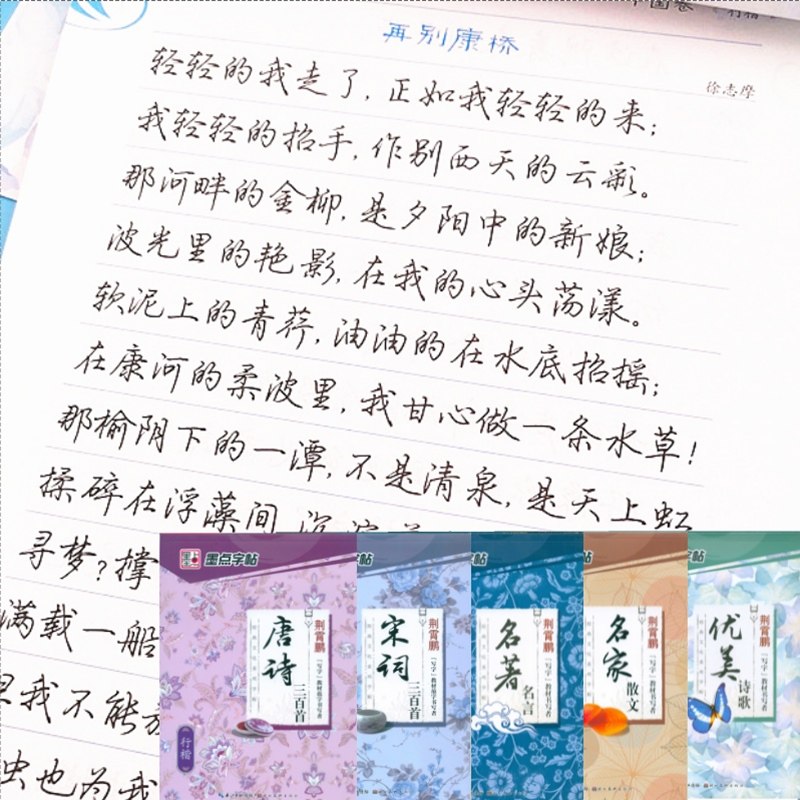 行楷
再别康桥
徐志摩
轻轻的我走了,正如我轻轻的来;
我轻轻的招手,作别西天的云彩。
那河畔的金柳,是夕阳中的新娘;
波光里的艳影,在我的心头荡漾。
软泥上的青荇,油油的在水底招摇;
在康河的柔波里,我甘心做一条水草!
那榆阴下的一潭,不是清泉,是天上虹
揉碎在浮藻间
寻梦?撑
满载一船
我不能
虫也为我
墨点字帖
荆霄鹏
唐诗三百首
行楷
帖
荆霄鹏
宋词三百首
帖
荆霄鹏
名著名言
荆霄鹏
名家散文
帖
荆霄鹏
优美诗歌